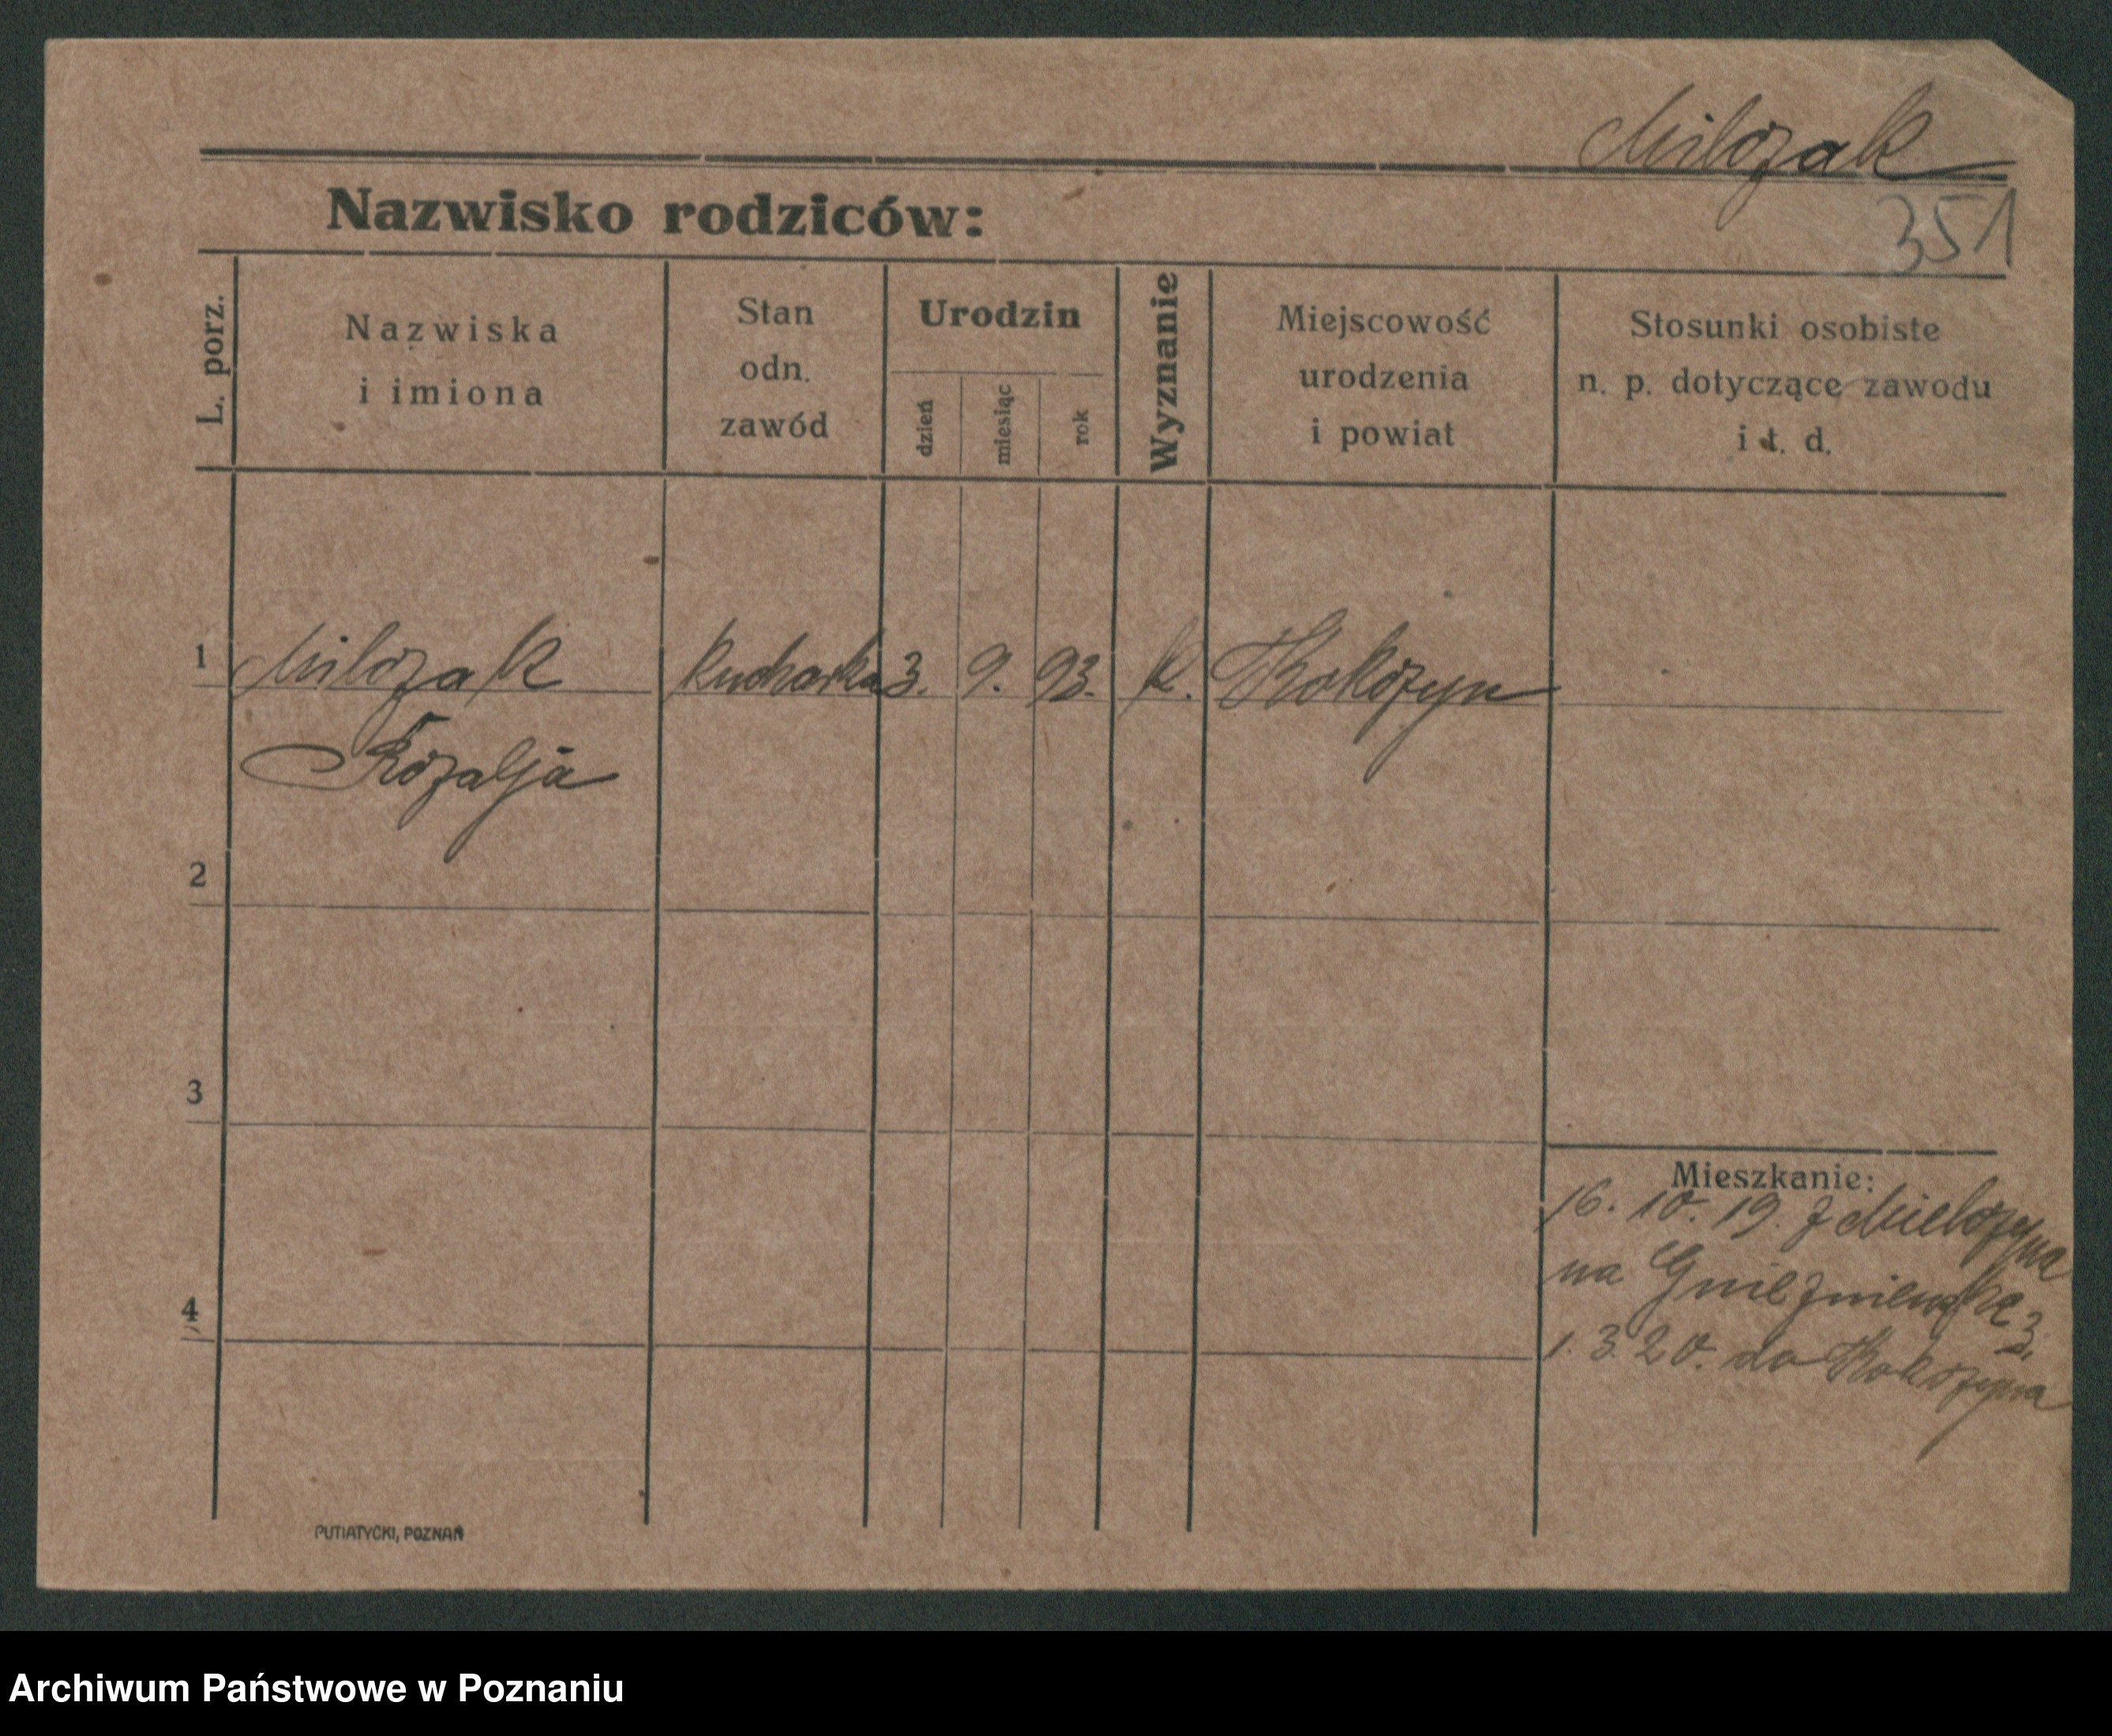 Milczak
351
Nazwisko rodziców:
L. porz.
Nazwiska
i imiona
Stan
odn.
zawód
Urodzin
dzień
miesiąc
rok
Wyznanie
Miejscowość
urodzenia
i powiat
Stosunki osobiste
n. p. dotyczące zawodu
i t. d.
1
Milczak
kucharka
3.
9.
93.
k.
Rokczyn
Rozalja
2
3
4
Mieszkanie:
16. 10. 19. z Mielczyna
na Gnieźnieńskę 3.
1. 3. 20. do
PUTIATYCKI, POZNAŃ
Archiwum Państwowe w Poznaniu